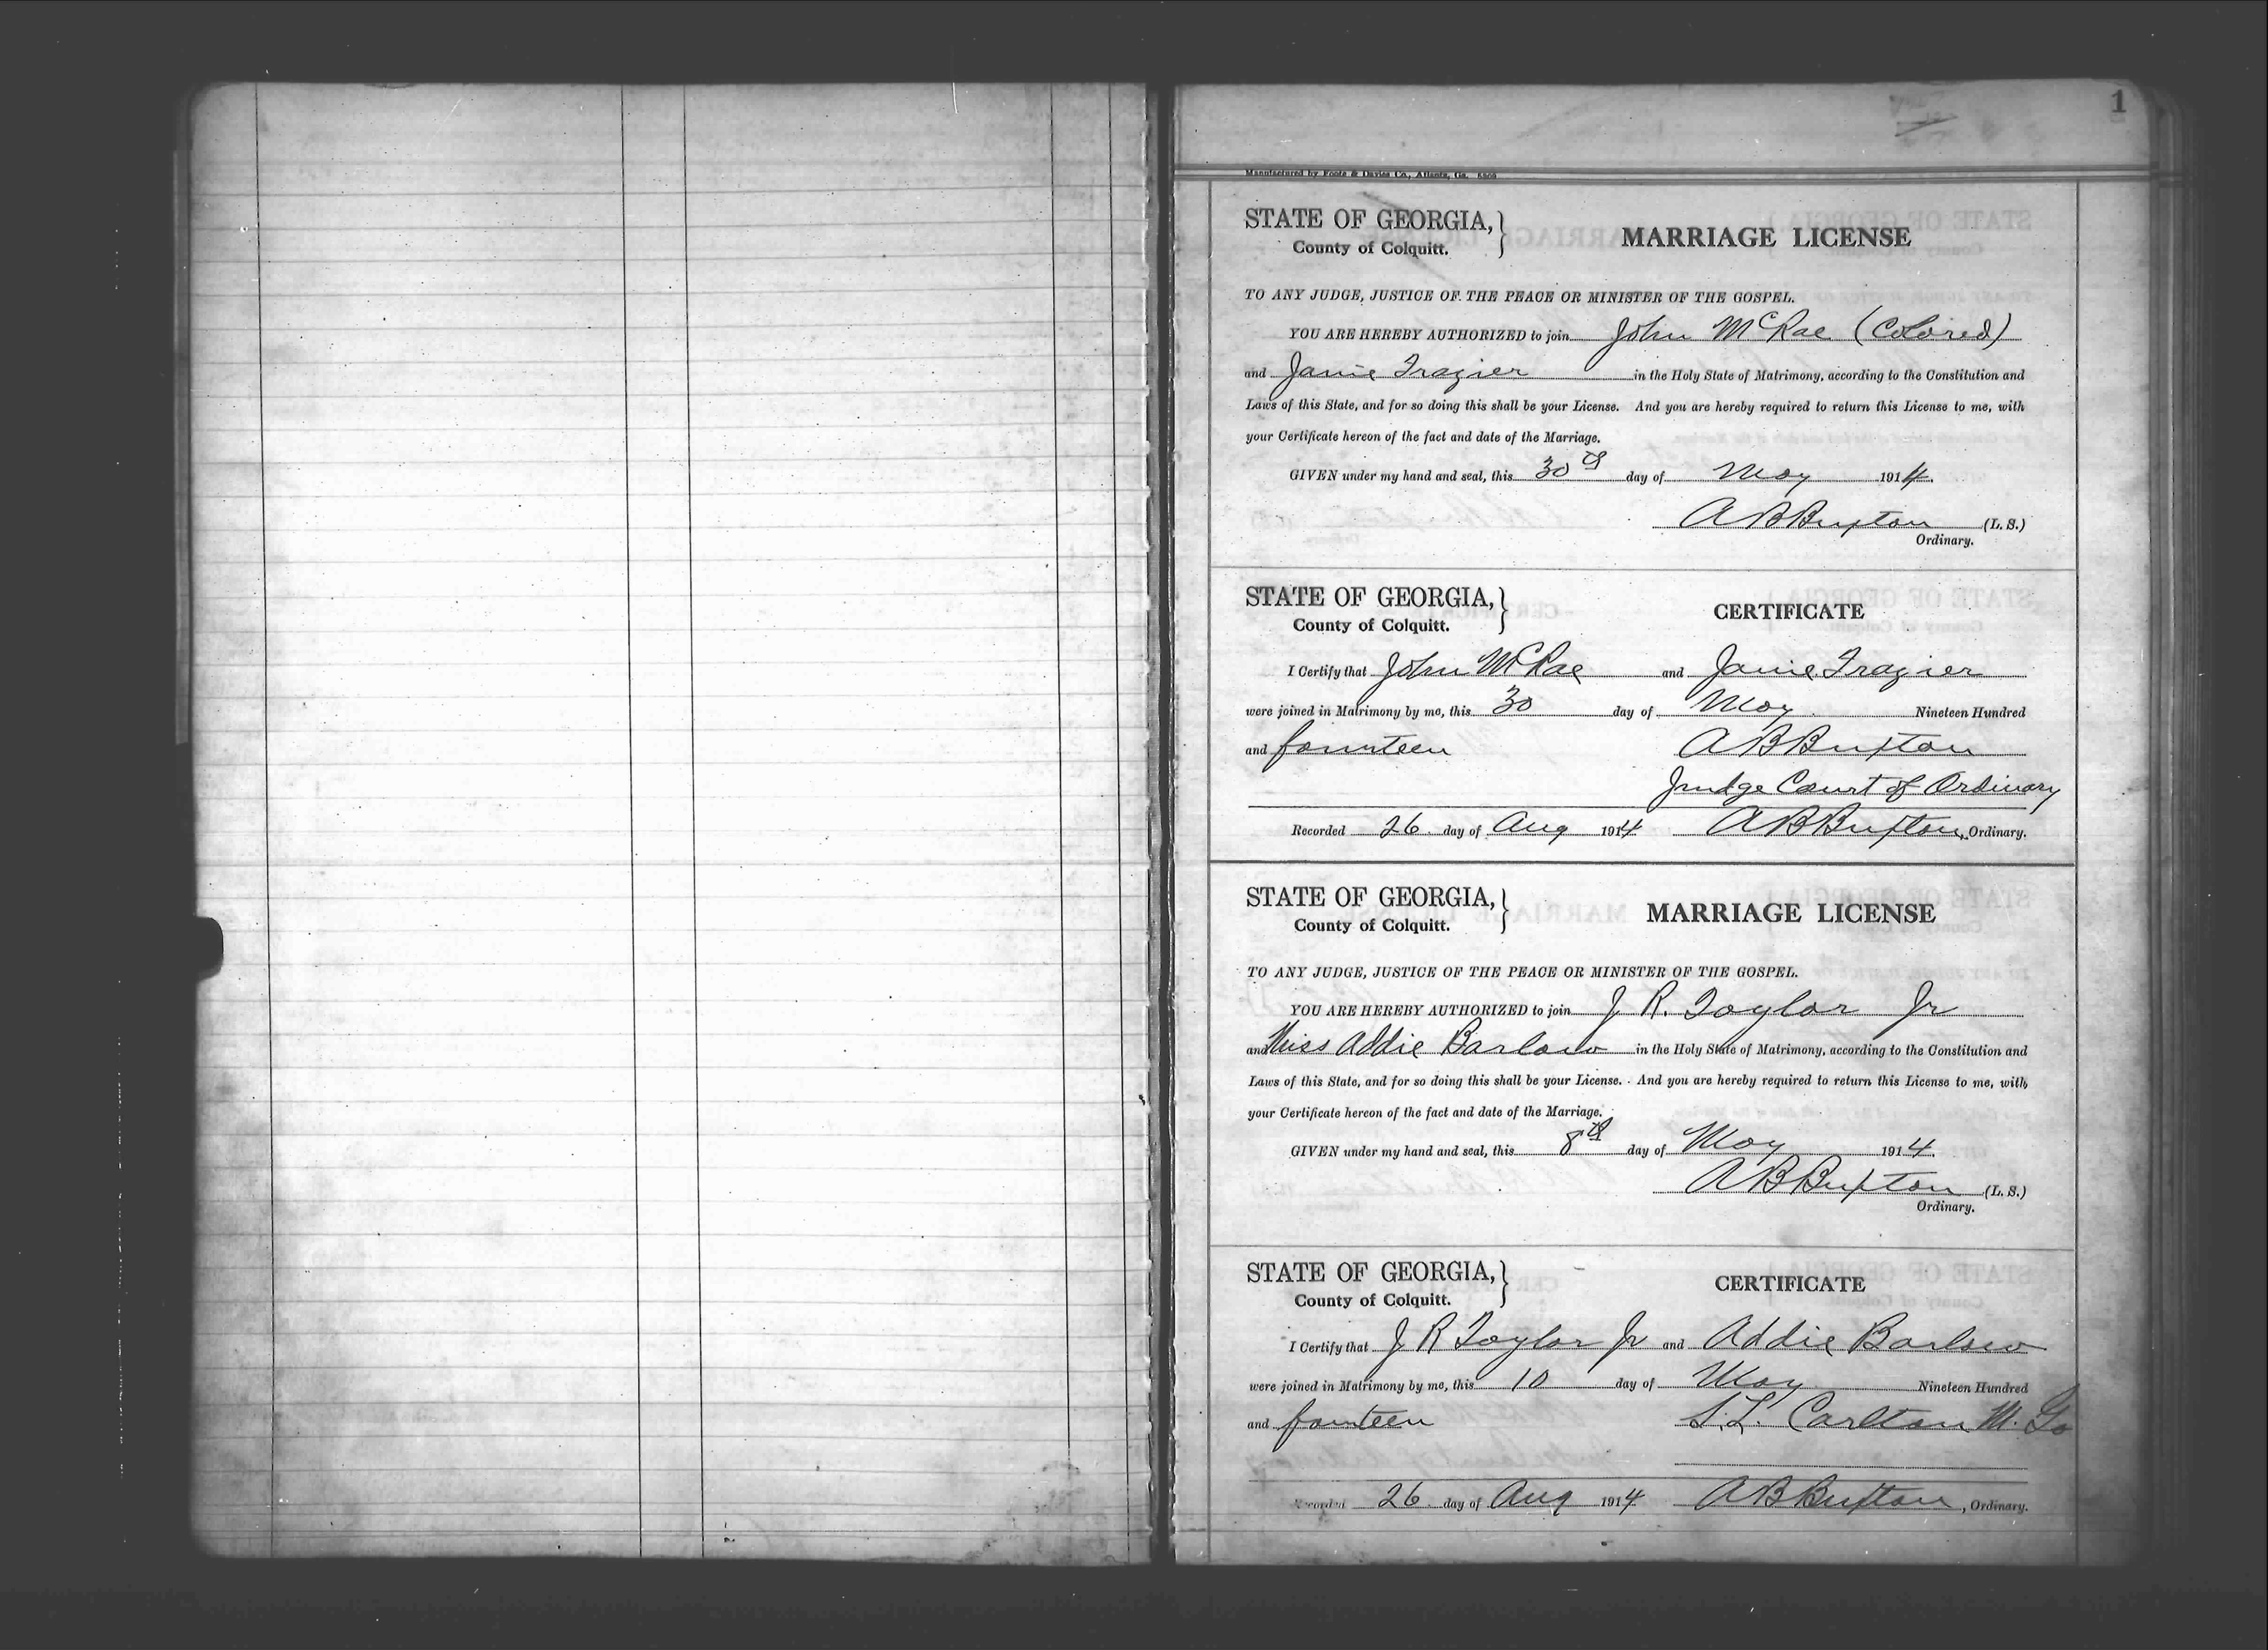 1
Manufactured by Foote & Davies Co., Atlanta, Ga.
STATE OF GEORGIA,
County of Colquitt.
MARRIAGE LICENSE
TO ANY JUDGE, JUSTICE OF THE PEACE OR MINISTER OF THE GOSPEL.
YOU ARE HEREBY AUTHORIZED to join John McRae (Colored)
and Janie Frazier in the Holy State of Matrimony, according to the Constitution and
Laws of this State, and for so doing this shall be your License. And you are hereby required to return this License to me, with
your Certificate hereon of the fact and date of the Marriage.
GIVEN under my hand and seal, this 30th day of May 1914.
A B Buxton (L. S.)
Ordinary.
STATE OF GEORGIA,
County of Colquitt.
CERTIFICATE
I Certify that John McRae and Janie Frazier
were joined in Matrimony by me, this 30 day of May Nineteen Hundred
and fourteen A B Buxton
Judge Court of Ordinary
Recorded 26 day of Aug 1914 A B Buxton, Ordinary.
STATE OF GEORGIA,
County of Colquitt.
MARRIAGE LICENSE
TO ANY JUDGE, JUSTICE OF THE PEACE OR MINISTER OF THE GOSPEL.
YOU ARE HEREBY AUTHORIZED to join J R. Taylor Jr
and Miss Addie Barlow in the Holy State of Matrimony, according to the Constitution and
Laws of this State, and for so doing this shall be your License. And you are hereby required to return this License to me, with
your Certificate hereon of the fact and date of the Marriage.
GIVEN under my hand and seal, this 8th day of May 1914.
A B Buxton (L. S.)
Ordinary.
STATE OF GEORGIA,
County of Colquitt.
CERTIFICATE
I Certify that J R Taylor Jr and Addie Barlow
were joined in Matrimony by me, this 10 day of May Nineteen Hundred
and fourteen S. L. Carlton M. G
Recorded 26 day of Aug 1914 A B Buxton, Ordinary.